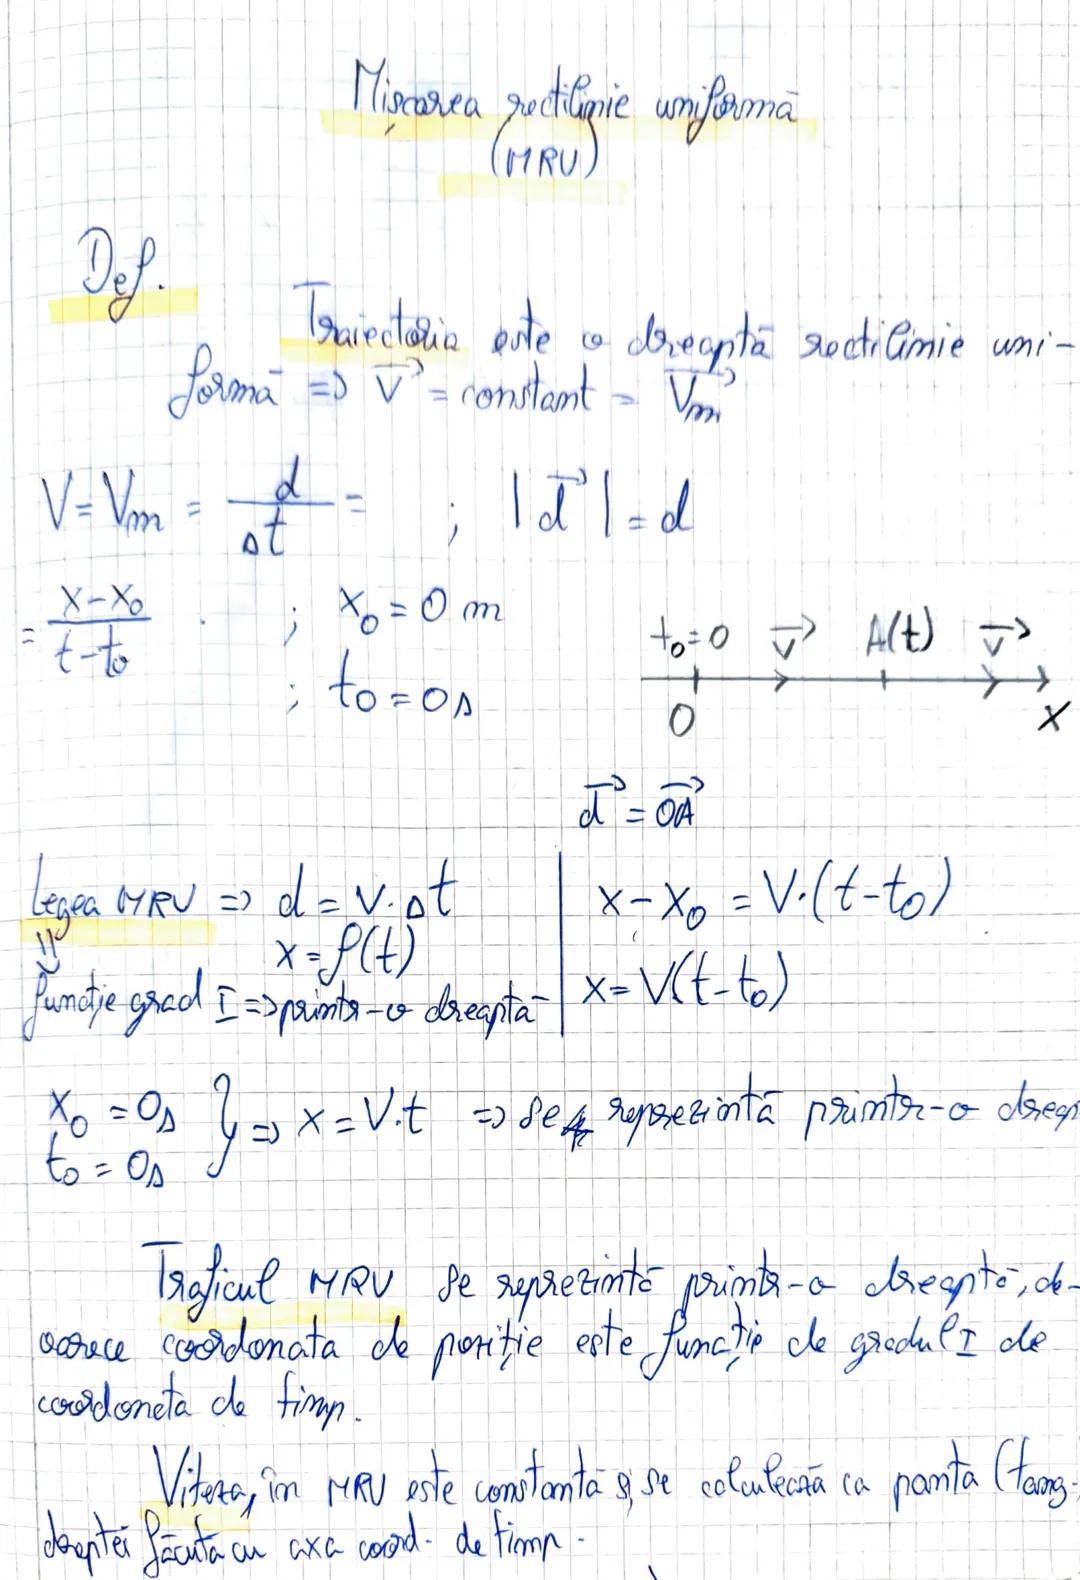 Mișcarea rectilinie uniformă
(MRU)
Def.
Traiectoria este o dreaptă rectilinie uni-
formă => v⃗ = constant = v⃗m
V = Vm = d/Δt = ; |d⃗| = d
= (x-x₀)/(t-t₀) ; x₀ = 0 m
; t₀ = 0s
t₀=0 v⃗ A(t) v⃗
O x
d⃗ = OA⃗
Legea MRU => d = v·Δt
x = f(t)
funcție grad I => printr-o dreaptă
x-x₀ = V·(t-t₀)
x = V(t-t₀)
x₀ = 0s
t₀ = 0s
} => x = V·t => se reprezintă printr-o dreap
Traficul MRU se reprezintă printr-o dreaptă, de-
oarece coordonata de poziție este funcție de gradul I de
coordonata de timp.
Viteza, în MRU este constantă și se calculează ca panta (tang.
dreptei făcută cu axa coord. de timp.